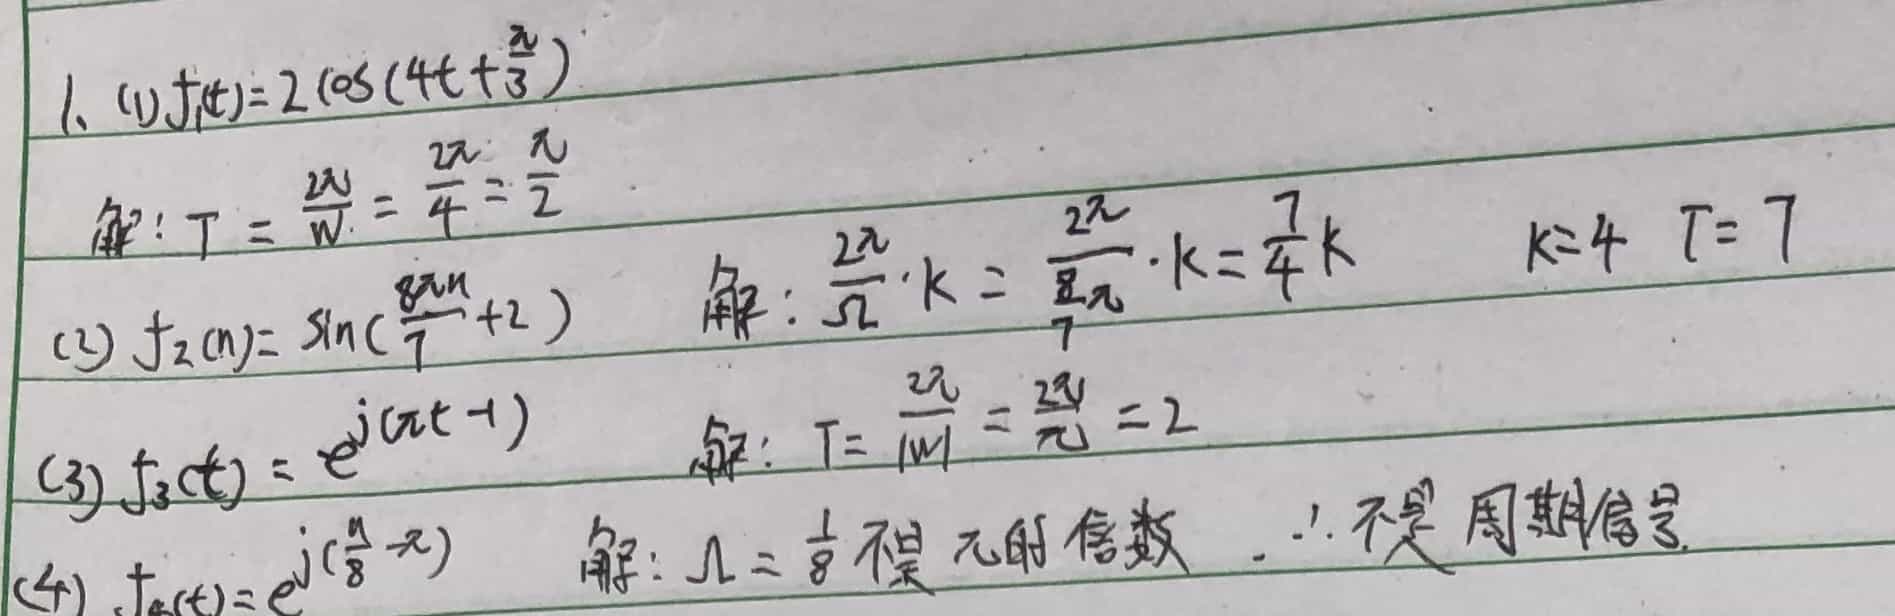 1、(1) f₁(t)=2cos(4t+π/3)
解: T = 2π/W = 2π/4 = π/2
(2) f₂(n)= sin(8πn/7+2) 解: 2π/Ω·k = 2π/(8π/7)·k = 7/4 k k=4 T=7
(3) f₃(t) = e^j(πt-1) 解: T= 2π/|W| = 2π/π = 2
(4) f₄(t)= e^j(n/8-π) 解: Ω = 1/8 不是π的倍数 ∴不是周期信号.